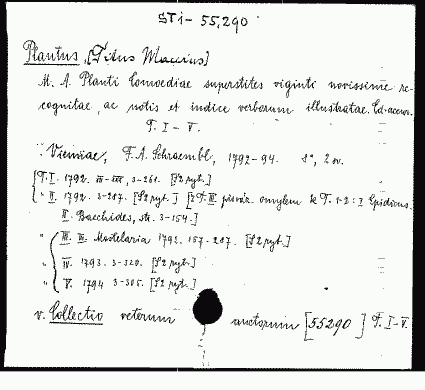 STi- 55,290
Plautus, [Titus Maccius]
M. A. Plauti Comoediae superstites viginti novissime re-
cognitae, ac notis et indice verborum illustratae. Ed. accur.
T. I - V.
Viennae, F. A. Schraembl, 1792-94. 8°, 2 sv.
T. I. 1792. III-XIX, 3-261. [S2 ryt.]
" II. 1792. 3-287. [S2 ryt.] [Z T. III přiváz. omylem k T. 1-2: I Epidicus.
II. Bacchides, str. 3-154.]
" III. III. Mostelaria 1792. 157-287. [S2 ryt.]
" IV. 1793. 3-320. [S2 ryt.]
" V. 1794 3-305. [S2 ryt.]
v. Collectio veterum auctorum [55290] T. I-V.